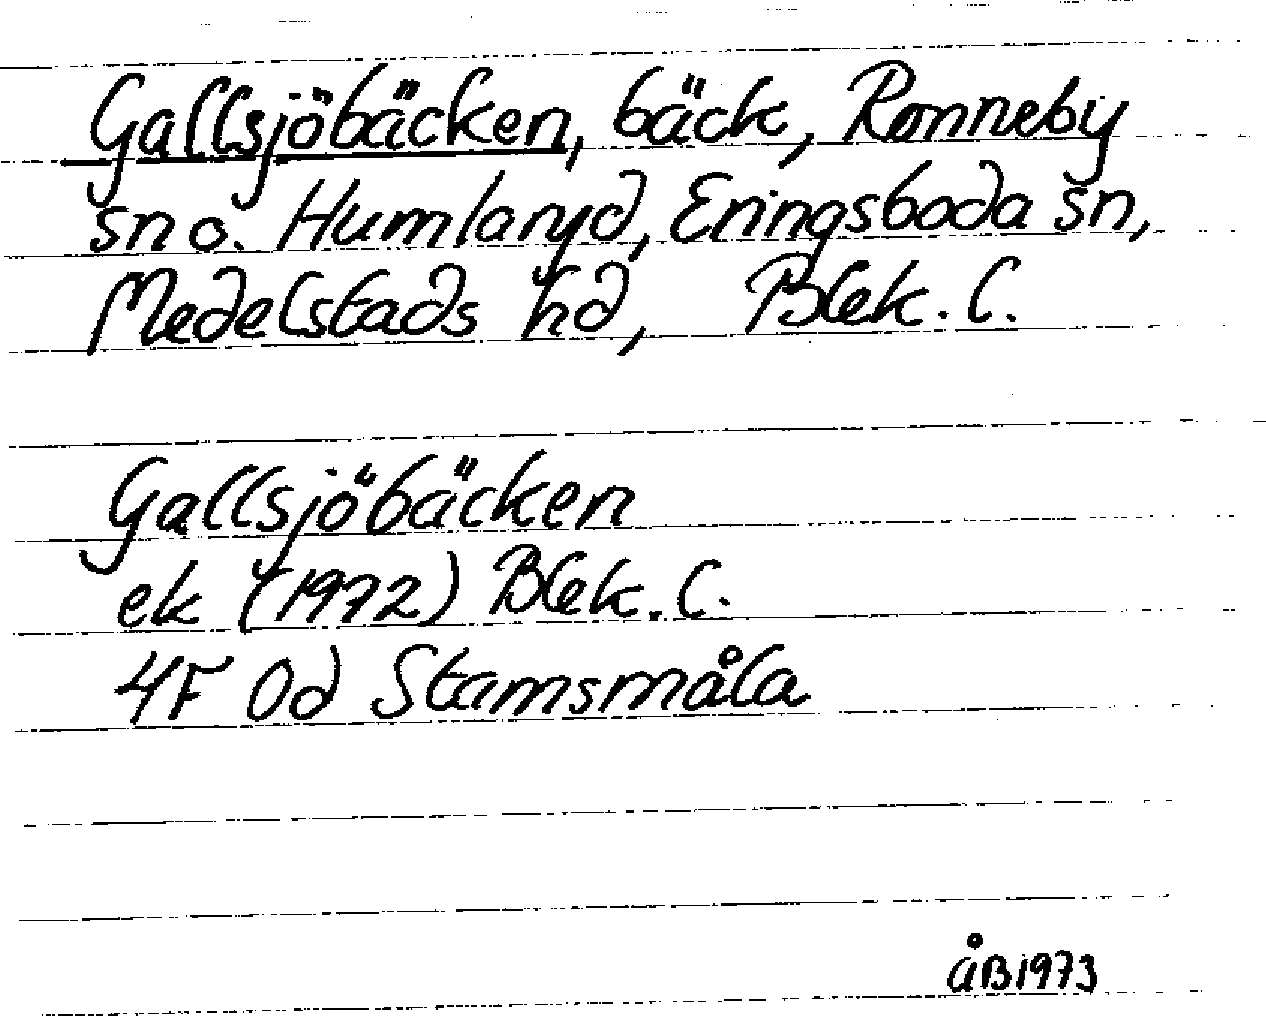 Gallsjöbäcken, bäck, Ronneby
sn o. Humlaryd, Eringsboda sn,
Medelstads hd, Blek. l.
Gallsjöbäcken
ek (1972) Blek. l.
4F 0d Stamsmåla
ÅB 1973